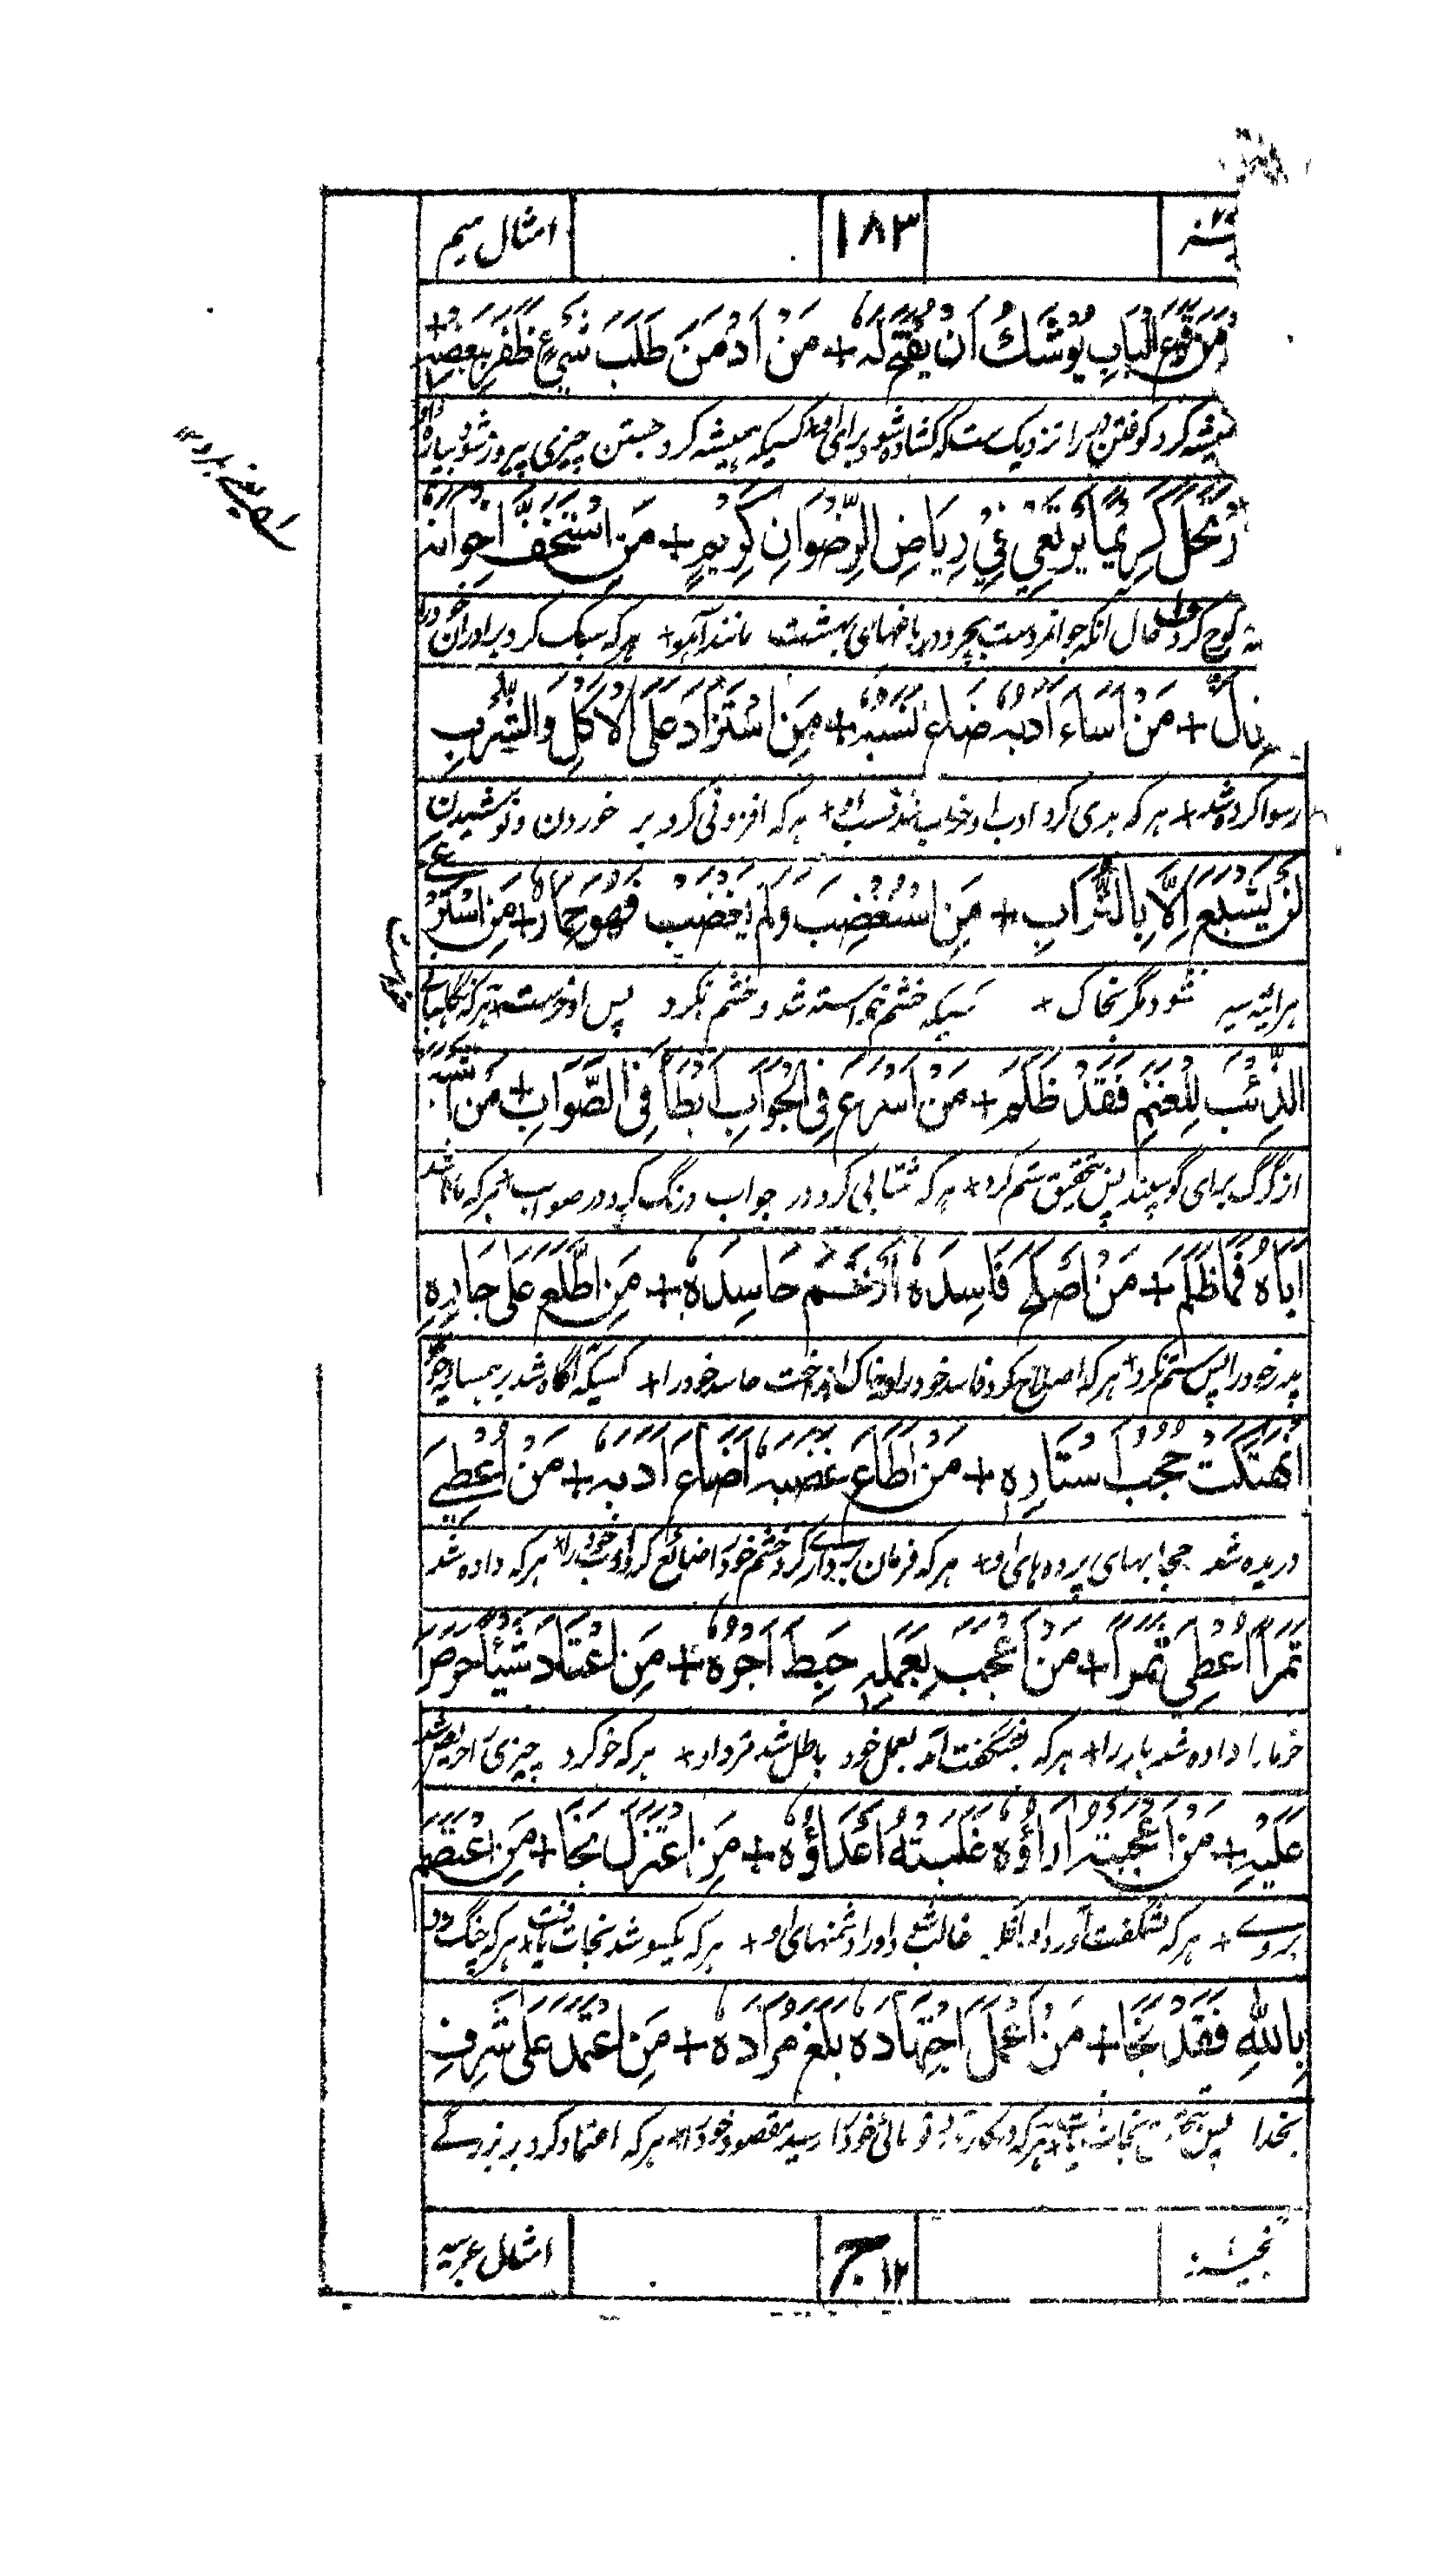 امثال میم ۱۸۳
قَرْعَ الْبَابِ يُوْشَكُ اَنْ يُفْتَحَ لَهٗ + مَنْ اَدْمَنَ طَلَبَ شَيْءٍ ظَفَرَ بِبَعْضِهٖ +
کرد کوفتن در را نزدیک ست که کشاده شود برای او + کسیکه همیشه کرد جستن چیزی پیروز شود
كَرِيْمًا يَرْتَعِيْ فِيْ رِيَاضِ الرِّضْوَانِ كَرِيْمٍ + مَنِ اسْتَخَفَّ اِخْوَانَهٗ
کوچ کرد حال آنکه جوانمردست بچرد در باغهای بهشت مانند آهو + هر که سبک کرد برادران خود را
+ مَنْ اَسَاءَ اَدَبُهٗ ضَاعَ نَسَبُهٗ + مَنِ اسْتَزَادَ عَلَى الْاَكْلِ وَالشُّرْبِ
رسوا کرده شد + هر که بدی کرد ادب او خراب شد نسب او + هر که افزونی کرد بر خوردن و نوشیدن
لَنْ يَشْبَعَ اِلَّا بِالتُّرَابِ + مَنِ اسْتُغْضِبَ وَلَمْ يَغْضَبْ فَهُوَ حِمَارٌ + مَنِ اسْتَرْعَى
هرآئینه سیر نشود مگر بخاک + کسیکه خشم خواسته شد و خشم نکرد پس او خرست + هر که نگاهبانی
الذِّئْبَ لِلْغَنَمِ فَقَدْ ظَلَمَ + مَنْ اَسْرَعَ فِی الْجَوَابِ اَبْطَأَ فِی الصَّوَابِ + مَنْ اَشْبَهَ
از گرگ برای گوسپند پس تحقیق ستم کرد + هر که شتابی کرد در جواب درنگ کرد در صواب + هر که مانند شد
اَبَاهُ فَمَا ظَلَمَ + مَنْ اَصْلَحَ فَاسِدَهٗ اَرْغَمَ حَاسِدَهٗ + مَنِ اطَّلَعَ عَلٰى جَارِهٖ
پدر خود را پس ستم نکرد + هر که اصلاح کرد فاسد خود را بخاک انداخت حاسد خود را + کسیکه آگاه شد بر همسایه خود
اِنْهَتَكَتْ حُجُبُ اَسْتَارِهٖ + مَنْ اَطَاعَ غَضَبَهٗ اَضَاعَ اَدَبَهٗ + مَنْ اُعْطِيَ
دریده شد حجابهای پرده های او + هر که فرمان برداری کرد خشم خود را ضائع کرد ادب خود را + هر که داده شد
تَمْرًا اُعْطِيَ ثَمَرًا + مَنْ اُعْجِبَ بِعَمَلِهٖ حَبِطَ اَجْرُهٗ + مَنِ اعْتَادَ شَيْئًا حَرَصَ
خرما را داده شد بار را + هر که بشگفت آمد بعمل خود باطل شد مزد او + هر که خو کرد چیزی را حریص شد
عَلَيْهِ + مَنْ اَعْجَبَتْهُ اٰرَاؤُهٗ غَلَبَتْهُ اَعْدَاؤُهٗ + مَنِ اعْتَزَلَ نَجَا + مَنِ اعْتَصَمَ
بروے + هر که بشگفت آورد او را غالب شد او را دشمنهای او + هر که یکسو شد نجات یافت + هر که چنگ زد
بِاللّٰهِ فَقَدْ نَجَا + مَنْ اَعْمَلَ اجْتِهَادَهٗ بَلَغَ مُرَادَهٗ + مَنِ اعْتَمَدَ عَلٰى شَرَفِ
بخدا پس نجات یافت + هر که رسید مقصود خود را + هر که اعتماد کرد بر بزرگے
امثال عربیہ ج ۱۲